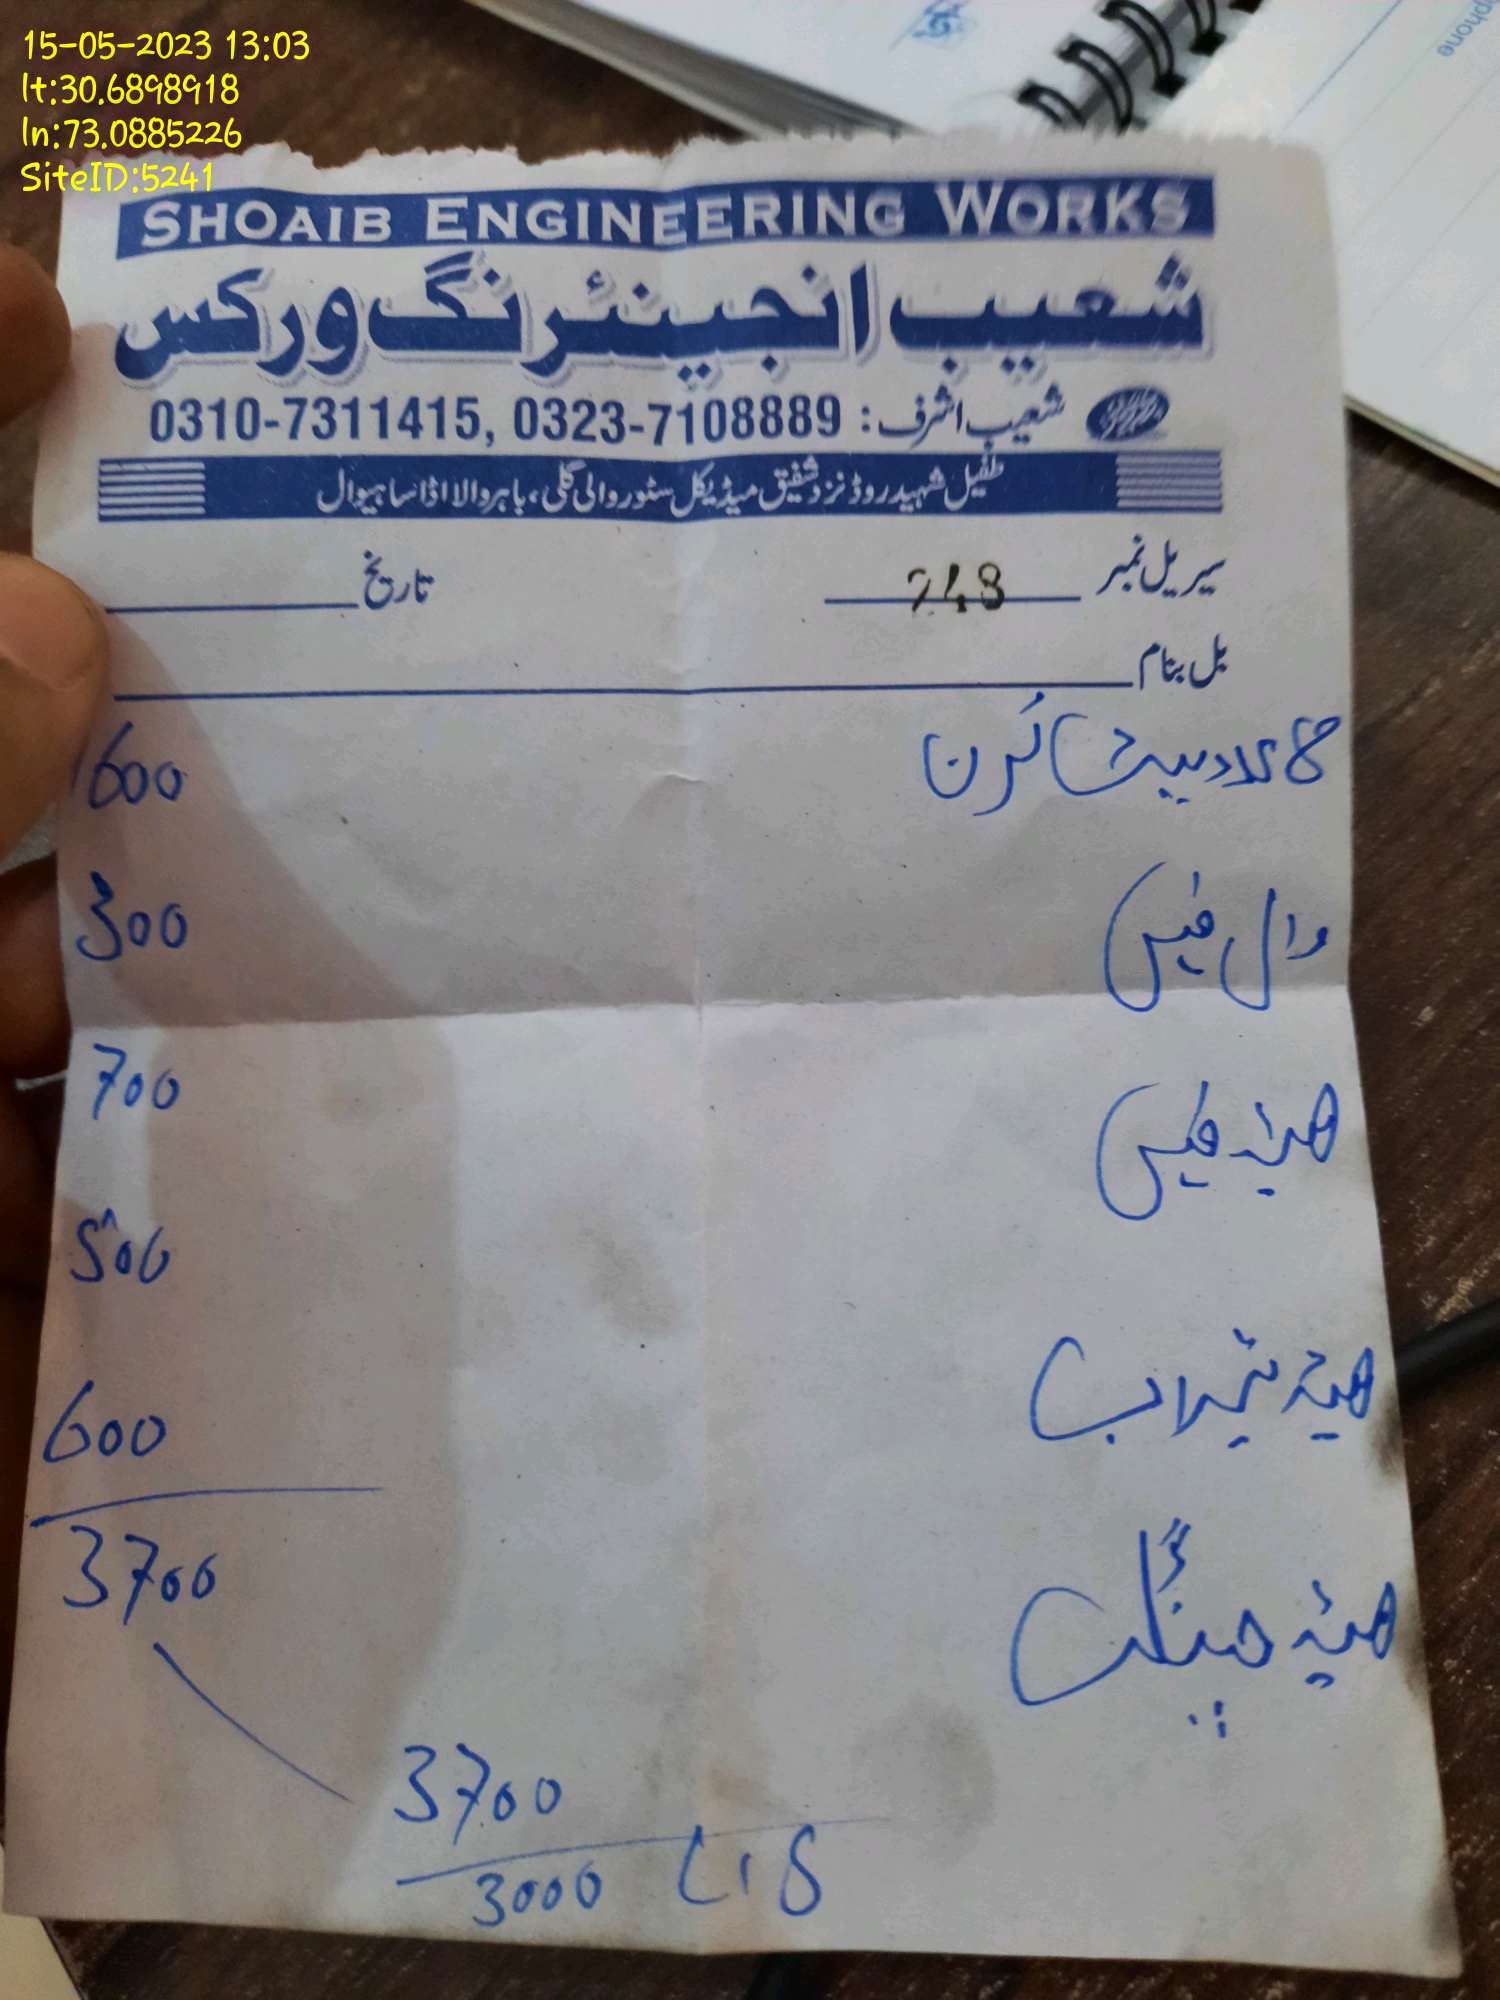 15-05-2023 13:03
lt:30.6898918
ln:73.0885226
SiteID:5241
SHOAIB ENGINEERING WORKS
شعیب انجینئرنگ ورکس
شعیب اشرف: 0310-7311415, 0323-7108889
طفیل شہید روڈ نزد شفیق میڈیکل سٹور والی گلی، باہر والا اڈا ساہیوال
سیریل نمبر 248 تاریخ
بل بنام
600
وال فیس 300
ھیڈ فیس 700
500
ھیڈ 600
3700
ھیڈ
3700
3000
phone